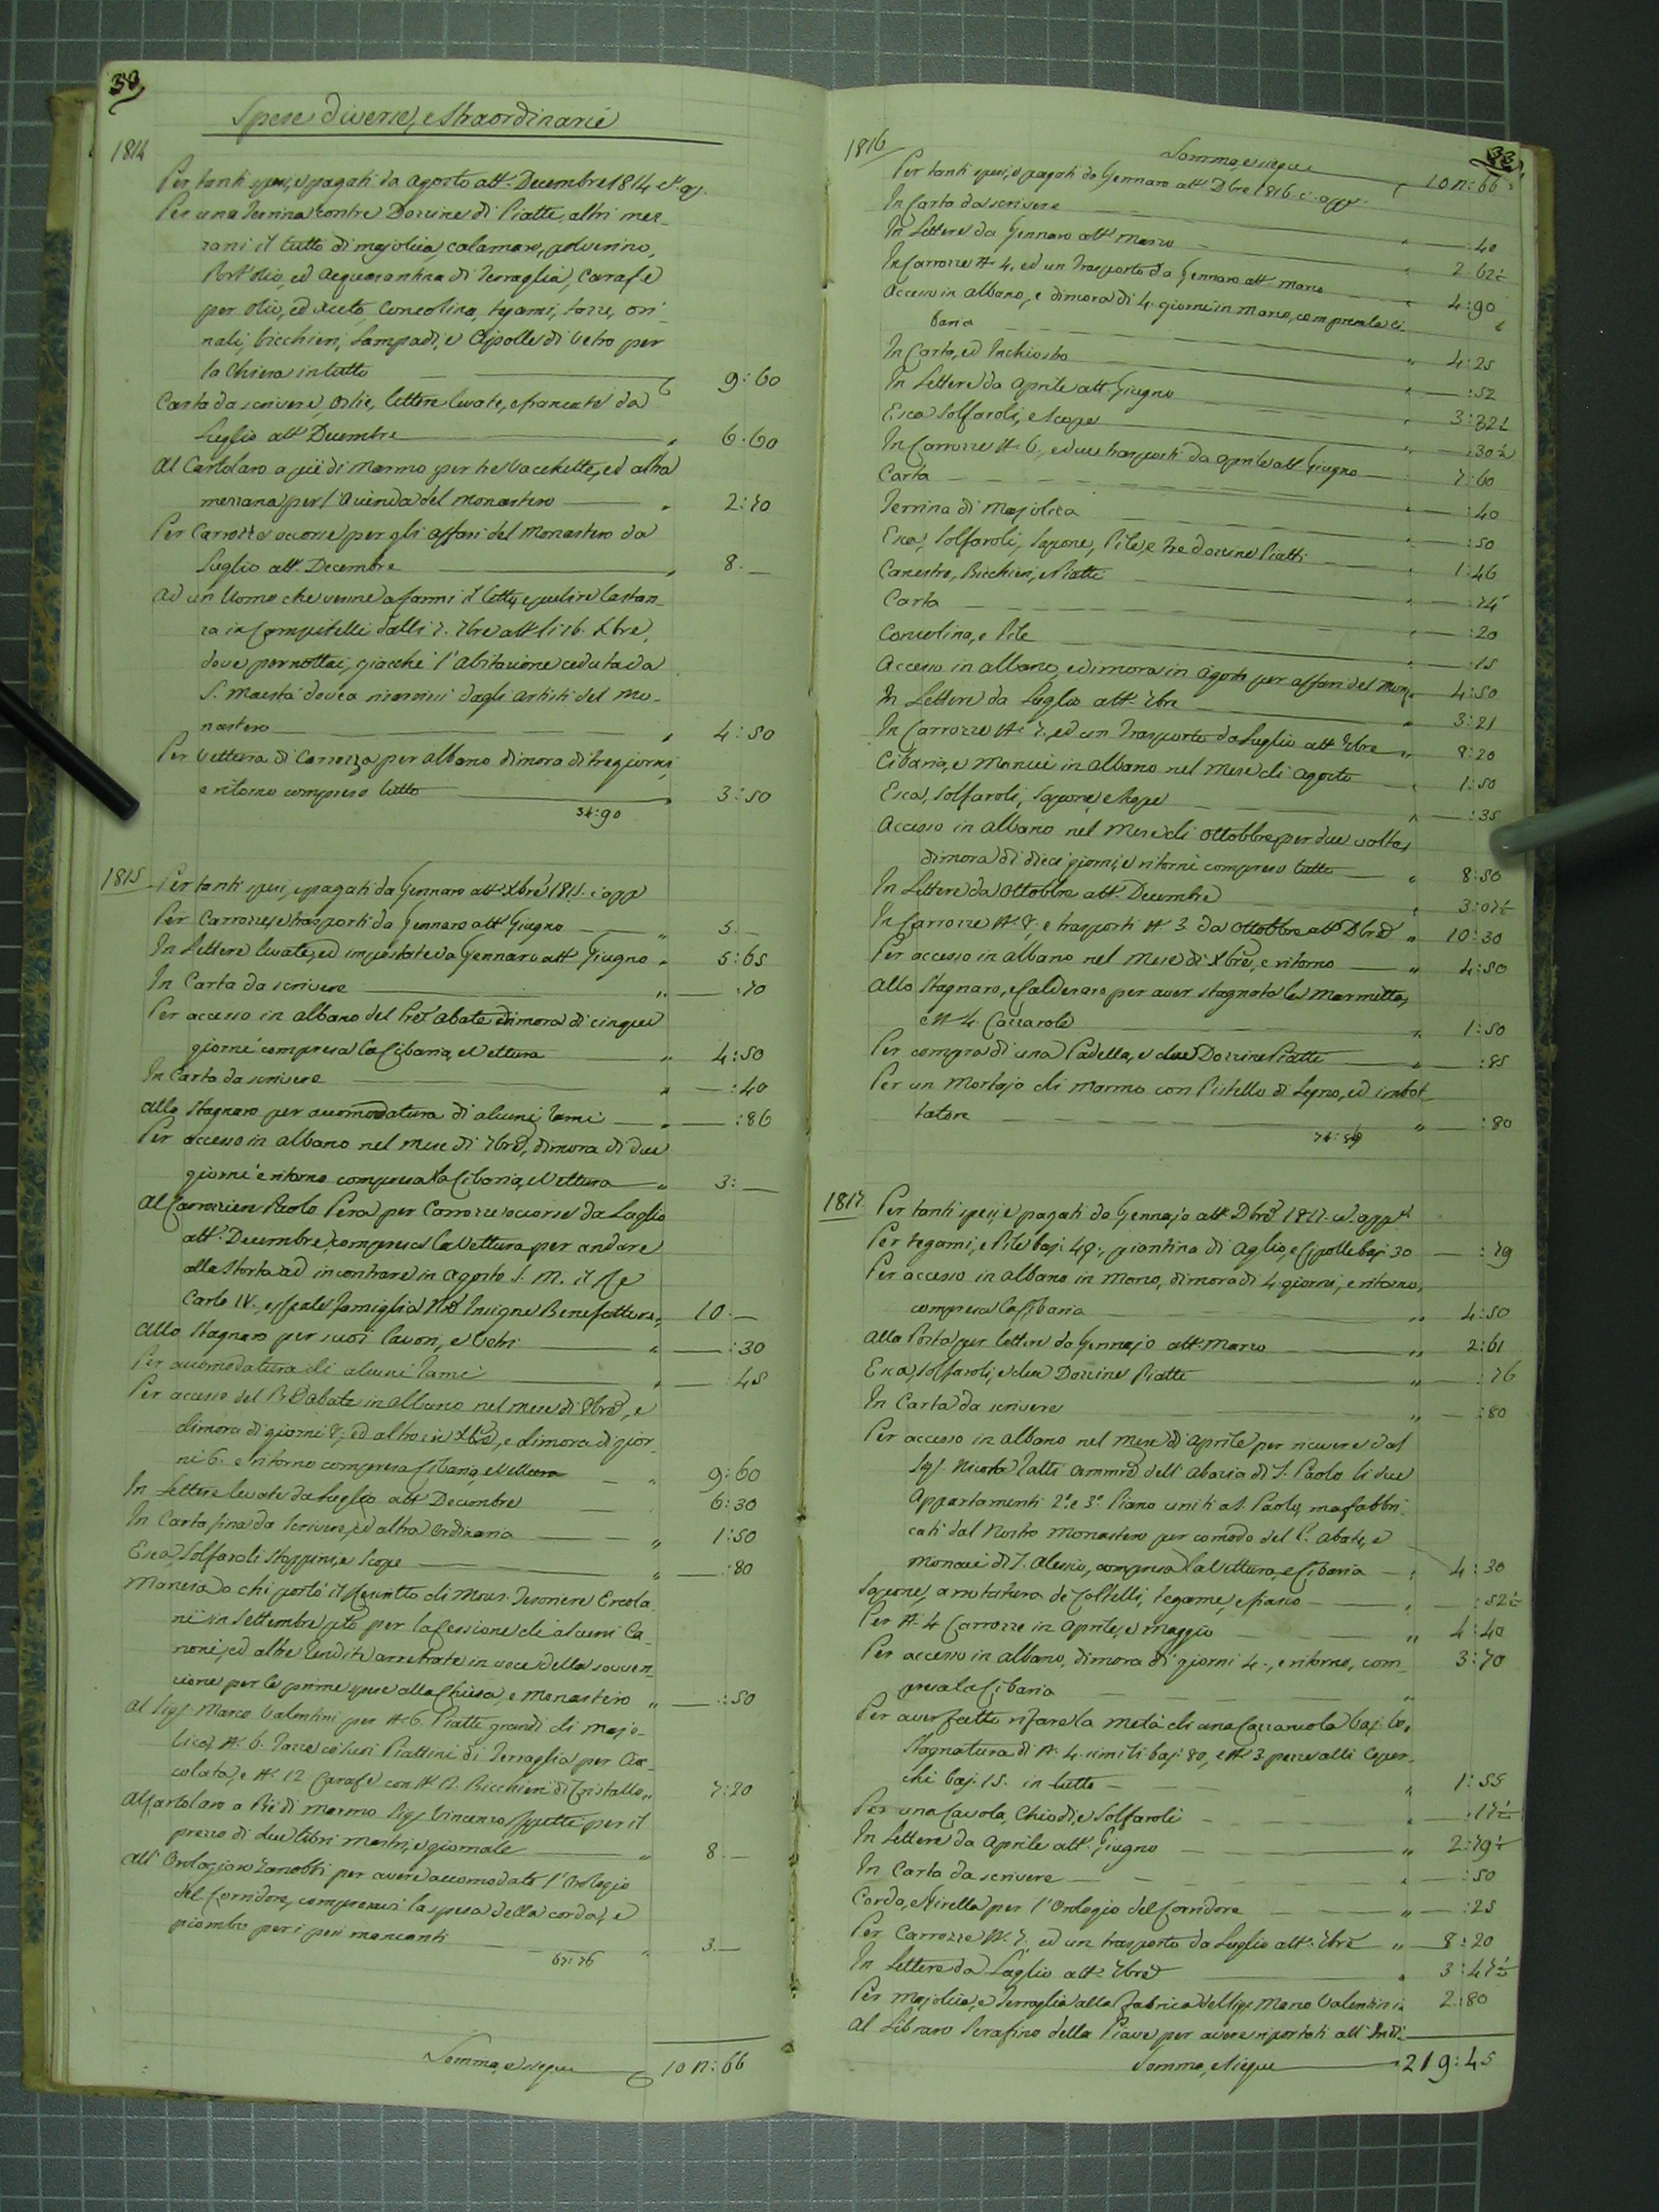 30
Spese diverse, e straordinarie
1814
Per tanti spesi, e pagati da Agosto all' Decembre 1814
Per una Terrina contre Dozzine di Piatti, altri mez-
zani il tutto di majolica, calamaro, polverino,
Port'olio, ed Acquasantina di Terraglia, Carafe
per olio, ed Aceto, Concolina, tegami, tazze, ori-
nali, bicchieri, Lampadi, e Cipolle di Vetro per
la Chiesa in tutto 9:60
Carta da scrivere, Ostie, lettere levate, e francate da
Luglio all' Decembre " 6:60
Al Cartolaro a piè di Marmo per tre Vacchette, ed altra
mezzana per l'Azienda del Monastero " 2:70
Per Carrozze occorse per gli affari del Monastero da
Luglio all' Decembre " 8:—
Ad un Uomo che venne a farmi il letto, e pulire la stan-
za in Campitelli dalli 7. 7bre all li 16. Xbre,
dove pernottai, giacchè l'Abitazione ceduta da
S. Maestà dovea
nastero " 4:50
Per Vettura di Carrozza per Albano dimora di tre giorni,
e ritorno compreso tutto " 3:50
34:90
1815 Per tanti spesi, e pagati da Gennaro all' Xbre 1815. c: app
Per Carrozze, e trasporti da Gennaro all' Giugno " 5:—
In Lettere levate, ed impostate da Gennaro all' Giugno " 5:65
In Carta da scrivere " —:70
Per accesso in Albano del Abate dimora di cinque
giorni compresa la Cibaria, e Vettura " 4:50
In Carta da scrivere " —:40
Allo Stagnaro per accomodatura di alcuni Rami " —:86
Per accesso in Albano nel mese di 7bre, dimora di due
giorni e ritorno compresa la Cibaria, e Vettura " 3:—
Al Carrozziere Paolo Pera per Carrozze occorse da Luglio
all' Decembre, compresa la Vettura per andare
alla Storta ad incontrare in Agosto S. M. il Re
Carlo IV., e Reale Famiglia Insigne Benefattore, 10:—
Allo Stagnaro per suoi lavori, e Vetri " —:30
Per accomodatura di alcuni Rami " —:45
Per accesso del Abate in Albano nel mese di 8bre, e
dimora di giorni 8; ed altro in Xbre, e dimora di gior-
ni 6. e ritorno compresa Cibaria, e Vettura — " 9:60
In Lettere levate da Luglio all' Decembre 6:30
In Carta fina da Scrivere, ed altra Ordinaria " 1:50
Esca, Solfaroli, Stoppini, e Scope " —:80
Mancia a chi portò il Rescritto di Mons. Tesoriere Ercola-
ni in Settembre per la Cessione di alcuni Ca-
noni, ed altre Rendite arretrate in vece della sovven-
zione per le prime spese alla Chiesa, e Monastero " —:50
Al Sig. Marco Valentini per N. 6. Piatti grandi di majo-
lica, N. 6. Tazze co' suoi Piattini di Terraglia per Cioc-
colata, e N. 12 Carafe con N. 12. Bicchieri di Cristallo " 7:20
Al Cartolaro a Piè di Marmo Sig. Vincenzo per il
prezzo di due libri mastri, e giornale " 8:—
All' Orologiaro Zanobbi per avere accomodato l'Orologio
del Corridore, compresavi la spesa della corda, e
piombo per i pesi mancanti " 3:—
67:76
Somma, e siegue 102:66
33
1816
Somma, e siegue 102:66
Per tanti spesi, e pagati da Gennaro all' Dbre 1816. c: app
In Carta da scrivere " —:40
In Lettere da Gennaro all' Marzo " 2:62½
In Carrozze N. 4., ed un Trasporto da Gennaro all' Marzo " 4:90
Accesso in Albano, e dimora di 4. giorni in Marzo, compresa la Ci-
baria " 4:25
In Carta, ed Inchiostro " —:52
In Lettere da Aprile all' Giugno " 3:32½
Esca, Solfaroli, e Scope " —:30½
In Carrozze N. 6., ed trasporti da Aprile all' Giugno " 7:60
Carta " —:40
Terrina di Majolica " —:50
Esca, Solfaroli, Sapone, Pile, e Tre dozzine Piatti " 1:46
Canestra, Bicchieri, e Piatti " —:74
Carta " —:20
Concolina, e Pile " —:15
Accesso in Albano, e dimora in Agosto per affari del " 4:50
In Lettere da Luglio all' 7bre " 3:21
In Carrozze N. 7., ed un Trasporto da Luglio all' 7bre " 8:20
Cibaria, e Mancie in Albano nel Mese di Agosto " 1:50
Esca, Solfaroli, Sapone, e Scope " —:35
Accesso in Albano nel Mese di Ottobbre per due volte,
dimora di dieci giorni, e ritorni compreso tutto " 8:50
In Lettere da Ottobbre all' Decembre " 3:07½
In Carrozze N. 8. e trasporti N. 3. da Ottobbre all' Dbre " 10:30
Per accesso in Albano nel Mese di Xbre, e ritorno " 4:50
Allo Stagnaro, e Calderaro per aver stagnata la Marmitta,
e N. 4. Cazzarole " 1:50
Per compra di una Padella, e due Dozzine Piatti " —:85
Per un Mortajo di marmo con Pistello di Legno, ed imbot-
tatore " —:80
1817. Per tanti spesi, e pagati da Gennajo all' Dbre 1817. c: app
Per tegami, e Pile baj: 49., piantina di Aglio, e Cipolle baj: 30 —:79
Per accesso in Albano in Marzo, dimora di 4. giorni, e ritorno,
compresa la Cibaria " 4:50
Alla Posta per lettere da Gennajo all' Marzo " 2:61
Esca, Solfaroli, e due Dozzine Piatti " —:76
In Carta da scrivere " —:80
Per accesso in Albano nel Mese di Aprile per ricevere dal
Sig. Nicola Ratti Ammre dell' Abazia di S. Paolo li due
Appartamenti 2.° e 3.° Piano uniti a S. Paolo, ma fabbri-
cati dal Nostro Monastero per comodo del P. Abate, e
Monaci di S. Alessio, compresa la Vettura, e Cibaria " 4:30
Sapone, arrotatura di Coltelli, tegame, e " —:52½
Per N. 4 Carrozze in Aprile, e Maggio " 4:40
Per accesso in Albano, dimora di giorni 4., e ritorno, com- 3:70
presa la Cibaria "
Per aver fatto rifare la metà di una Cazzarola baj: 60.
Stagnatura di N. 4. simili baj: 80, e N. 3. pezze alli Coper-
chi baj. 15. in tutto " 1:55
Per una Chiodi, e Solfaroli " —:17½
In Lettere da Aprile all' Giugno " 2:79½
In Carta da scrivere " —:50
Corda, e Girella per l'Orologio del Corridore " —:25
Per Carrozze N. 7. ed un trasporto da Luglio all' 7bre " 8:20
In Lettere da Luglio all' 7bre " 3:47½
Per Majolica, e Terraglia alla Fabrica del Sig. Marco Valentini 2:80
Al Libraro Serafino della Piave per avere riportati all'
Somma, e siegue 219:45